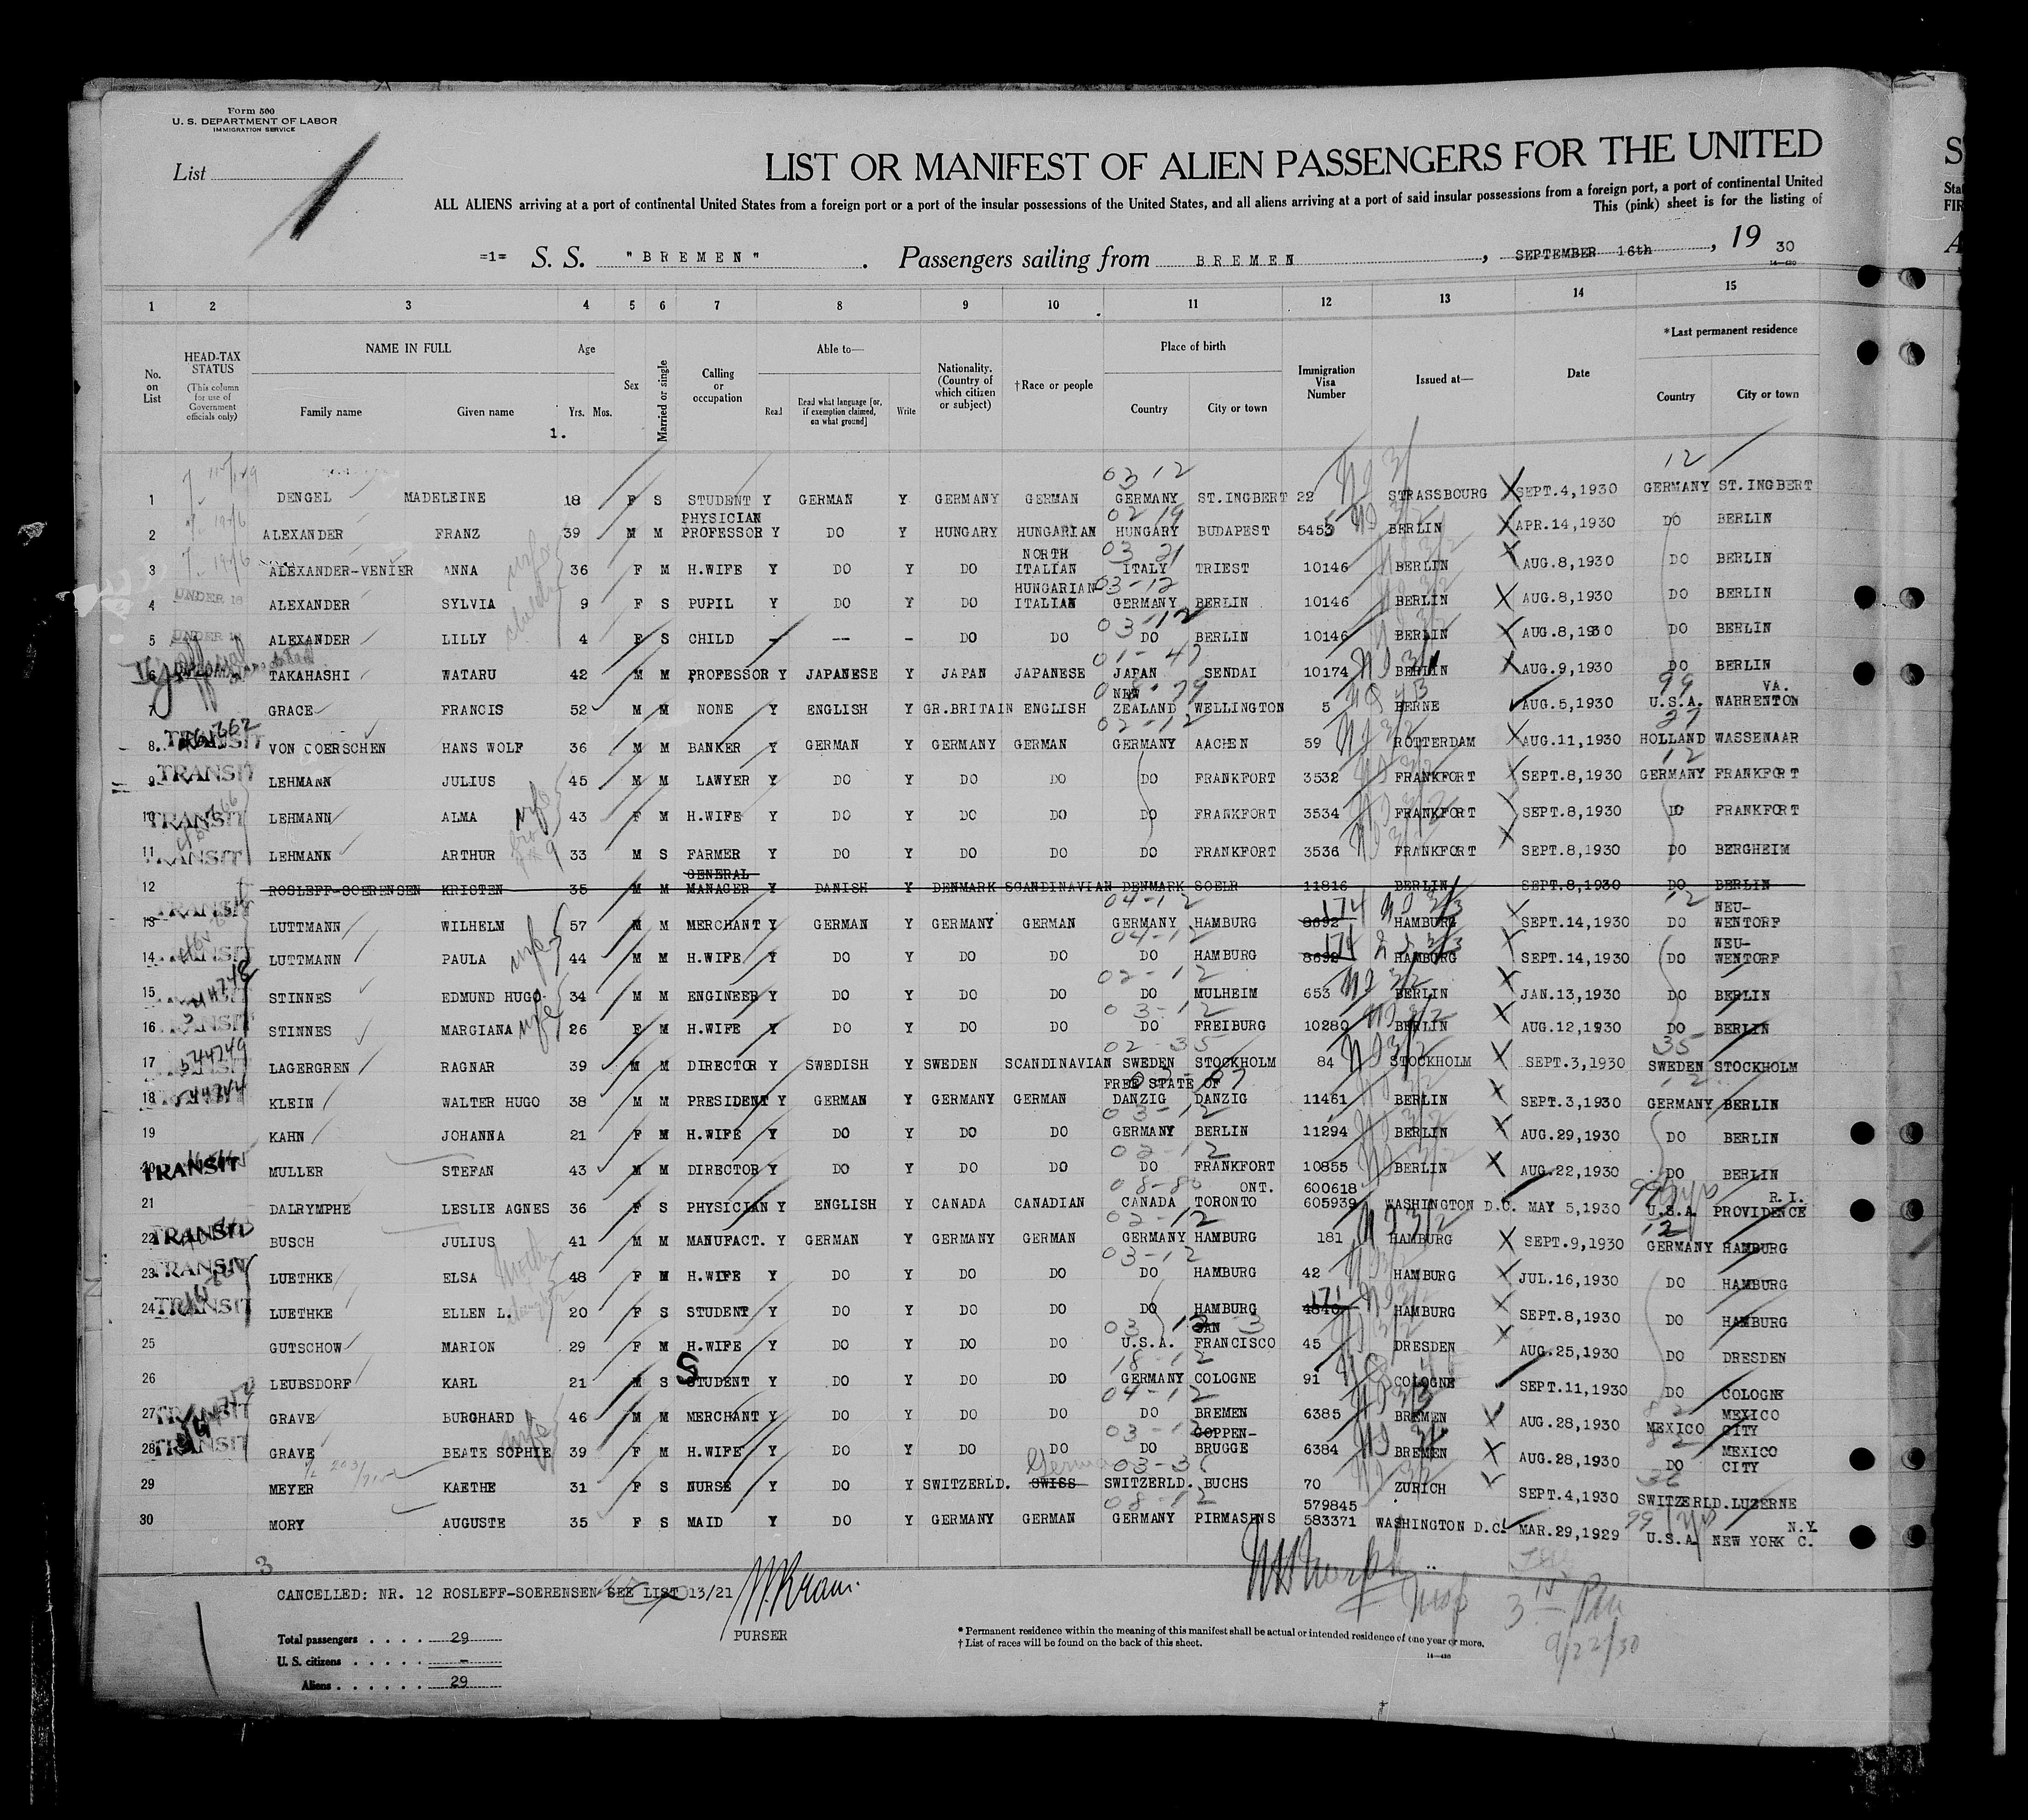 Form 500
U. S. DEPARTMENT OF LABOR
IMMIGRATION SERVICE
List 1
LIST OR MANIFEST OF ALIEN PASSENGERS FOR THE UNITED
ALL ALIENS arriving at a port of continental United States from a foreign port or a port of the insular possessions of the United States, and all aliens arriving at a port of said insular possessions from a foreign port, a port of continental United
This (pink) sheet is for the listing of
=1= S. S. "BREMEN". Passengers sailing from BREMEN, SEPTEMBER 16th, 1930
1 2 3 4 5 6 7 8 9 10 11 12 13 14 15
No. on List
HEAD-TAX STATUS
(This column for use of Government officials only)
NAME IN FULL
Family name
Given name
Age
Yrs. Mos.
Sex
Married or single
Calling or occupation
Able to—
Read
Read what language [or, if exemption claimed, on what ground]
Write
Nationality. (Country of which citizen or subject)
†Race or people
Place of birth
Country
City or town
Immigration Visa Number
Issued at—
Date
*Last permanent residence
Country
City or town
1.
1 DENGEL MADELEINE 18 F S STUDENT Y GERMAN Y GERMANY GERMAN GERMANY ST.INGBERT 22 STRASSBOURG SEPT.4,1930 GERMANY ST.INGBERT
2 ALEXANDER FRANZ 39 M M PHYSICIAN PROFESSOR Y DO Y HUNGARY HUNGARIAN HUNGARY BUDAPEST 5453 BERLIN APR.14,1930 DO BERLIN
3 ALEXANDER-VENIER ANNA 36 F M H.WIFE Y DO Y DO NORTH ITALIAN ITALY TRIEST 10146 BERLIN AUG.8,1930 DO BERLIN
4 UNDER 16 ALEXANDER SYLVIA 9 F S PUPIL Y DO Y DO HUNGARIAN ITALIAN GERMANY BERLIN 10146 BERLIN AUG.8,1930 DO BERLIN
5 UNDER 16 ALEXANDER LILLY 4 F S CHILD - -- - DO DO DO BERLIN 10146 BERLIN AUG.8,1930 DO BERLIN
6 TAKAHASHI WATARU 42 M M PROFESSOR Y JAPANESE Y JAPAN JAPANESE JAPAN SENDAI 10174 BERLIN AUG.9,1930 DO BERLIN
7 GRACE FRANCIS 52 M M NONE Y ENGLISH Y GR.BRITAIN ENGLISH NEW ZEALAND WELLINGTON 5 BERNE AUG.5,1930 U.S.A. WARRENTON VA.
8. TRANSIT VON GOERSCHEN HANS WOLF 36 M M BANKER Y GERMAN Y GERMANY GERMAN GERMANY AACHEN 59 ROTTERDAM AUG.11,1930 HOLLAND WASSENAAR
9 TRANSIT LEHMANN JULIUS 45 M M LAWYER Y DO Y DO DO DO FRANKFORT 3532 FRANKFORT SEPT.8,1930 GERMANY FRANKFORT
10 TRANSIT LEHMANN ALMA wife 43 F M H.WIFE Y DO Y DO DO DO FRANKFORT 3534 FRANKFORT SEPT.8,1930 DO FRANKFORT
11 TRANSIT LEHMANN ARTHUR 33 M S FARMER Y DO Y DO DO DO FRANKFORT 3536 FRANKFORT SEPT.8,1930 DO BERGHEIM
12 ROSLEFF-SOERENSEN KRISTEN 35 M M GENERAL MANAGER Y DANISH Y DENMARK SCANDINAVIAN DENMARK SOELR 11816 BERLIN SEPT.8,1930 DO BERLIN
13 TRANSIT LUTTMANN WILHELM 57 M M MERCHANT Y GERMAN Y GERMANY GERMAN GERMANY HAMBURG 8692 174 HAMBURG SEPT.14,1930 DO NEU-WENTORF
14 TRANSIT LUTTMANN PAULA wife 44 F M H.WIFE Y DO Y DO DO DO HAMBURG 8692 174 HAMBURG SEPT.14,1930 DO NEU-WENTORF
15 STINNES EDMUND HUGO 34 M M ENGINEER Y DO Y DO DO DO MULHEIM 653 BERLIN JAN.13,1930 DO BERLIN
16 TRANSIT STINNES MARGIANA wife 26 F M H.WIFE Y DO Y DO DO DO FREIBURG 10280 BERLIN AUG.12,1930 DO BERLIN
17 LAGERGREN RAGNAR 39 M M DIRECTOR Y SWEDISH Y SWEDEN SCANDINAVIAN SWEDEN STOCKHOLM 84 STOCKHOLM SEPT.3,1930 SWEDEN STOCKHOLM
18 KLEIN WALTER HUGO 38 M M PRESIDENT Y GERMAN Y GERMANY GERMAN FREE STATE OF DANZIG DANZIG 11461 BERLIN SEPT.3,1930 GERMANY BERLIN
19 KAHN JOHANNA 21 F M H.WIFE Y DO Y DO DO GERMANY BERLIN 11294 BERLIN AUG.29,1930 DO BERLIN
20 TRANSIT MULLER STEFAN 43 M M DIRECTOR Y DO Y DO DO DO FRANKFORT 10855 BERLIN AUG.22,1930 DO BERLIN
21 DALRYMPHE LESLIE AGNES 36 F S PHYSICIAN Y ENGLISH Y CANADA CANADIAN CANADA TORONTO ONT. 600618 605939 WASHINGTON D.C. MAY 5,1930 U.S.A. PROVIDENCE R.I.
22 TRANSIT BUSCH JULIUS 41 M M MANUFACT. Y GERMAN Y GERMANY GERMAN GERMANY HAMBURG 181 HAMBURG SEPT.9,1930 GERMANY HAMBURG
23 TRANSIT LUETHKE ELSA 48 F M H.WIFE Y DO Y DO DO DO HAMBURG 42 HAMBURG JUL.16,1930 DO HAMBURG
24 TRANSIT LUETHKE ELLEN L. 20 F S STUDENT Y DO Y DO DO DO HAMBURG 171 HAMBURG SEPT.8,1930 DO HAMBURG
25 GUTSCHOW MARION 29 F M H.WIFE Y DO Y DO DO U.S.A. SAN FRANCISCO 45 DRESDEN AUG.25,1930 DO DRESDEN
26 LEUBSDORF KARL 21 M S STUDENT Y DO Y DO DO GERMANY COLOGNE 91 COLOGNE SEPT.11,1930 DO COLOGNE
27 TRANSIT GRAVE BURGHARD 46 M M MERCHANT Y DO Y DO DO DO BREMEN 6385 BREMEN AUG.28,1930 MEXICO MEXICO CITY
28 TRANSIT GRAVE BEATE SOPHIE wife 39 F M H.WIFE Y DO Y DO DO DO COPPEN-BRUGGE 6384 BREMEN AUG.28,1930 DO MEXICO CITY
29 MEYER KAETHE 31 F S NURSE Y DO Y SWITZERLD. SWISS German SWITZERLD. BUCHS 70 ZURICH SEPT.4,1930 SWITZERLD. LUZERNE
30 MORY AUGUSTE 35 F S MAID Y DO Y GERMANY GERMAN GERMANY PIRMASENS 579845 583371 WASHINGTON D.C. MAR.29,1929 U.S.A. NEW YORK C. N.Y.
3
CANCELLED: NR. 12 ROSLEFF-SOERENSEN SEE LIST 13/21
PURSER
Total passengers . . . . 29
U. S. citizens . . . . . -
Aliens . . . . . . 29
* Permanent residence within the meaning of this manifest shall be actual or intended residence of one year or more.
† List of races will be found on the back of this sheet.
14—430
3 15 Pm
9/22/30